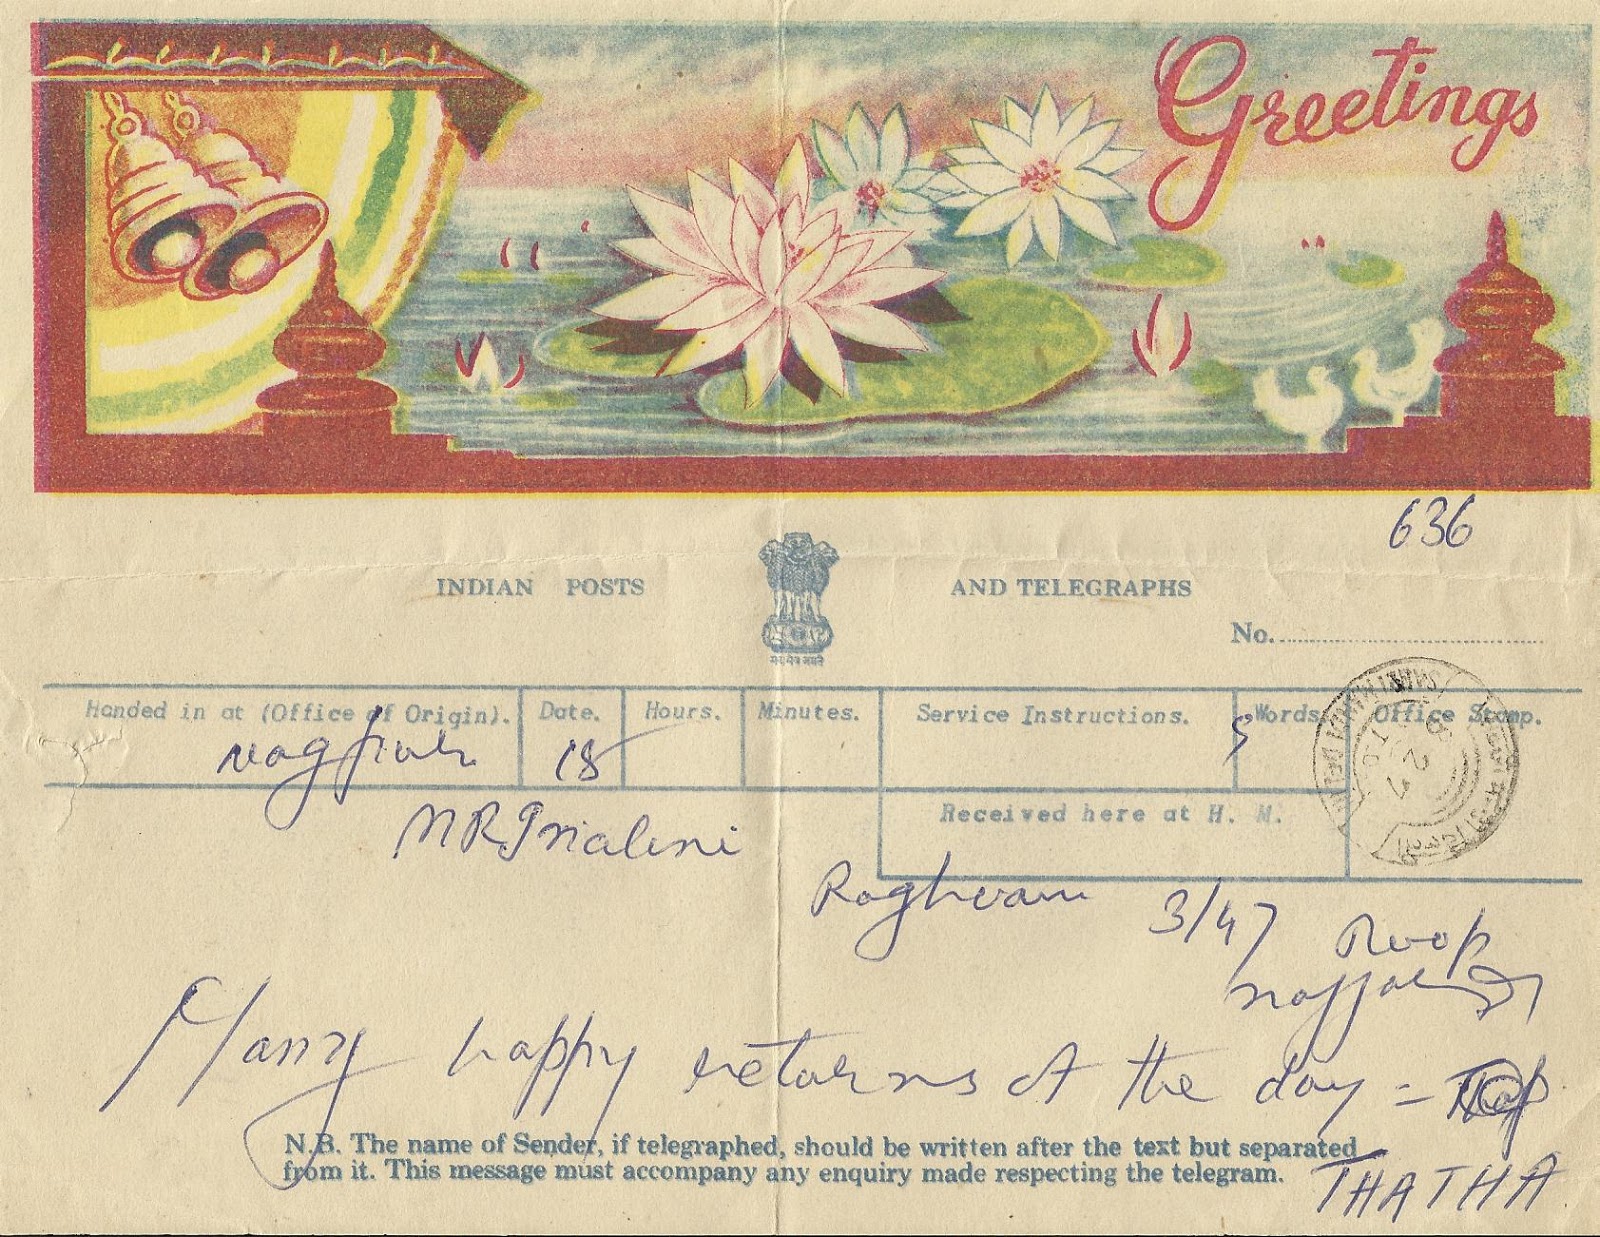 Greetings
636
INDIAN POSTS AND TELEGRAPHS
No.
Handed in at (Office of Origin). Date. Hours. Minutes. Service Instructions. Words. Office Stamp.
Nagpur 18 5
Received here at H. M.
Raghvan 3/47 Roop
Many happy returns of the day =
N.B. The name of Sender, if telegraphed, should be written after the text but separated
from it. This message must accompany any enquiry made respecting the telegram.
THATHA